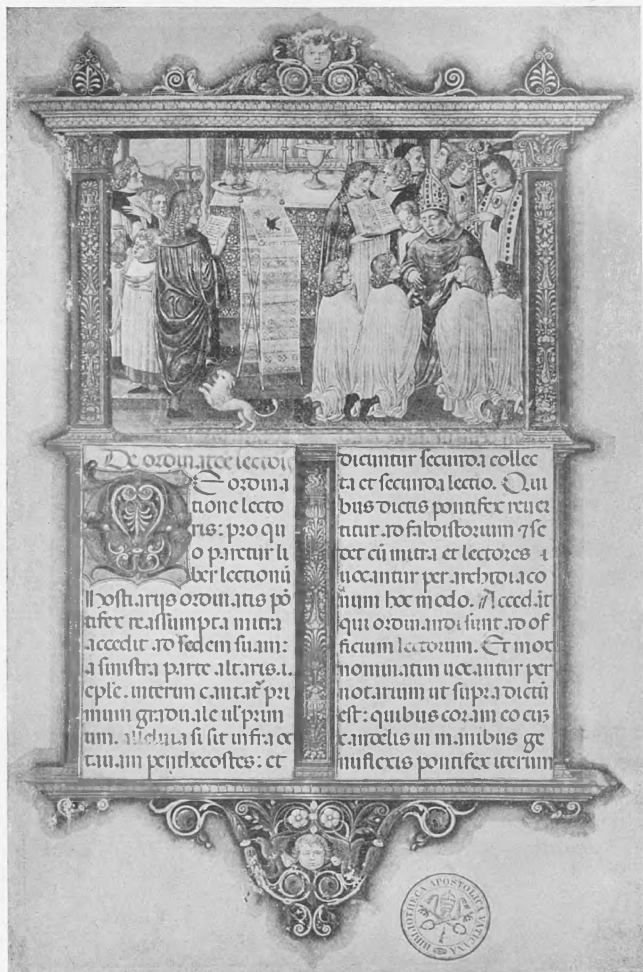 De ordinatōe lectoris
E ordina
tione lecto
ris: pro qu
o paretur li
ber lectionū
Hostiarijs ordinatis pō
tifex reassumpta mitra
accedit ad sedem suam:
a sinistra parte altaris.i.
ep̄le. interim cantat᷑ pri
mum graduale ul' prim
um. alleluia si sit infra oc
tauam penthecostes: et
dicuntur secunda collec
ta et secunda lectio. Qui
bus dictis pontifex reuer
titur ad faldistorium ⁊ se
det cū mitra et lectores
uocantur per archidiaco
num hoc modo. Accedāt
qui ordinandi sunt ad of
ficium lectorum. Et mox
nominatim uocantur per
notarium ut supra dictū
est: quibus coram eo cuʒ
candelis in manibus ge
nuflexis pontifex iterum
BIBLIOTHECA APOSTOLICA VATICANA